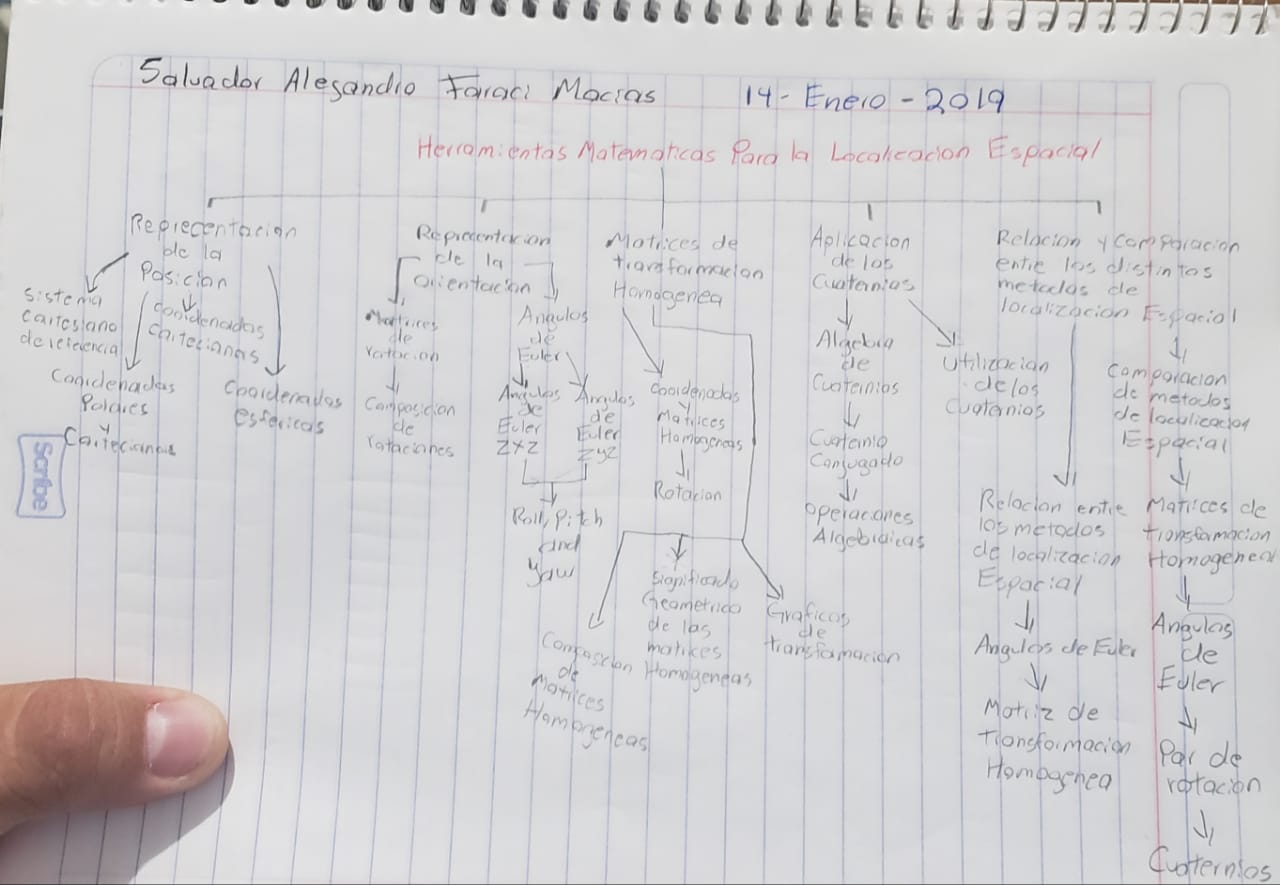 Salvador Alesandro Faraci Macias 14-Enero-2019
Herramientas Matematicas Para la Localicacion Espacial
Reprecentacion
de la
Posicion
Sistema
Cartesiano
de referencia
Coordenadas
Polares
y
Cartecianas
Coordenadas
Cartecianas
Coordenadas
esfericas
Reprecentacion
de la
orientacion
Matrices
de
rotacion
Composicion
de
rotaciones
Angulos
de
Euler
Angulos
de
Euler
ZXZ
Angulos
de
Euler
ZYZ
Roll, Pitch
and
Yaw
Matrices de
transformacion
Homogenea
Coordenadas
y
Matrices
Homogeneas
Rotacion
Composicion
de
Matrices
Homogeneas
Significado
Geometrico
de las
matrices
Homogeneas
Graficos
de
transformacion
Aplicacion
de los
Cuaternios
Algebra
de
Cuaternios
Cuaternio
Conjugado
operaciones
Algebraicas
Utilizacion
de los
Cuaternios
Relacion y comparacion
entre los distintos
metodos de
localizacion Espacial
Relacion entre
los metodos
de localizacion
Espacial
Angulos de Euler
Matriz de
transformacion
Homogenea
Comparacion
de metodos
de localizacion
Espacial
Matrices de
transformacion
Homogenea
Angulos
de
Euler
Par de
rotacion
Cuaternios
Scribe